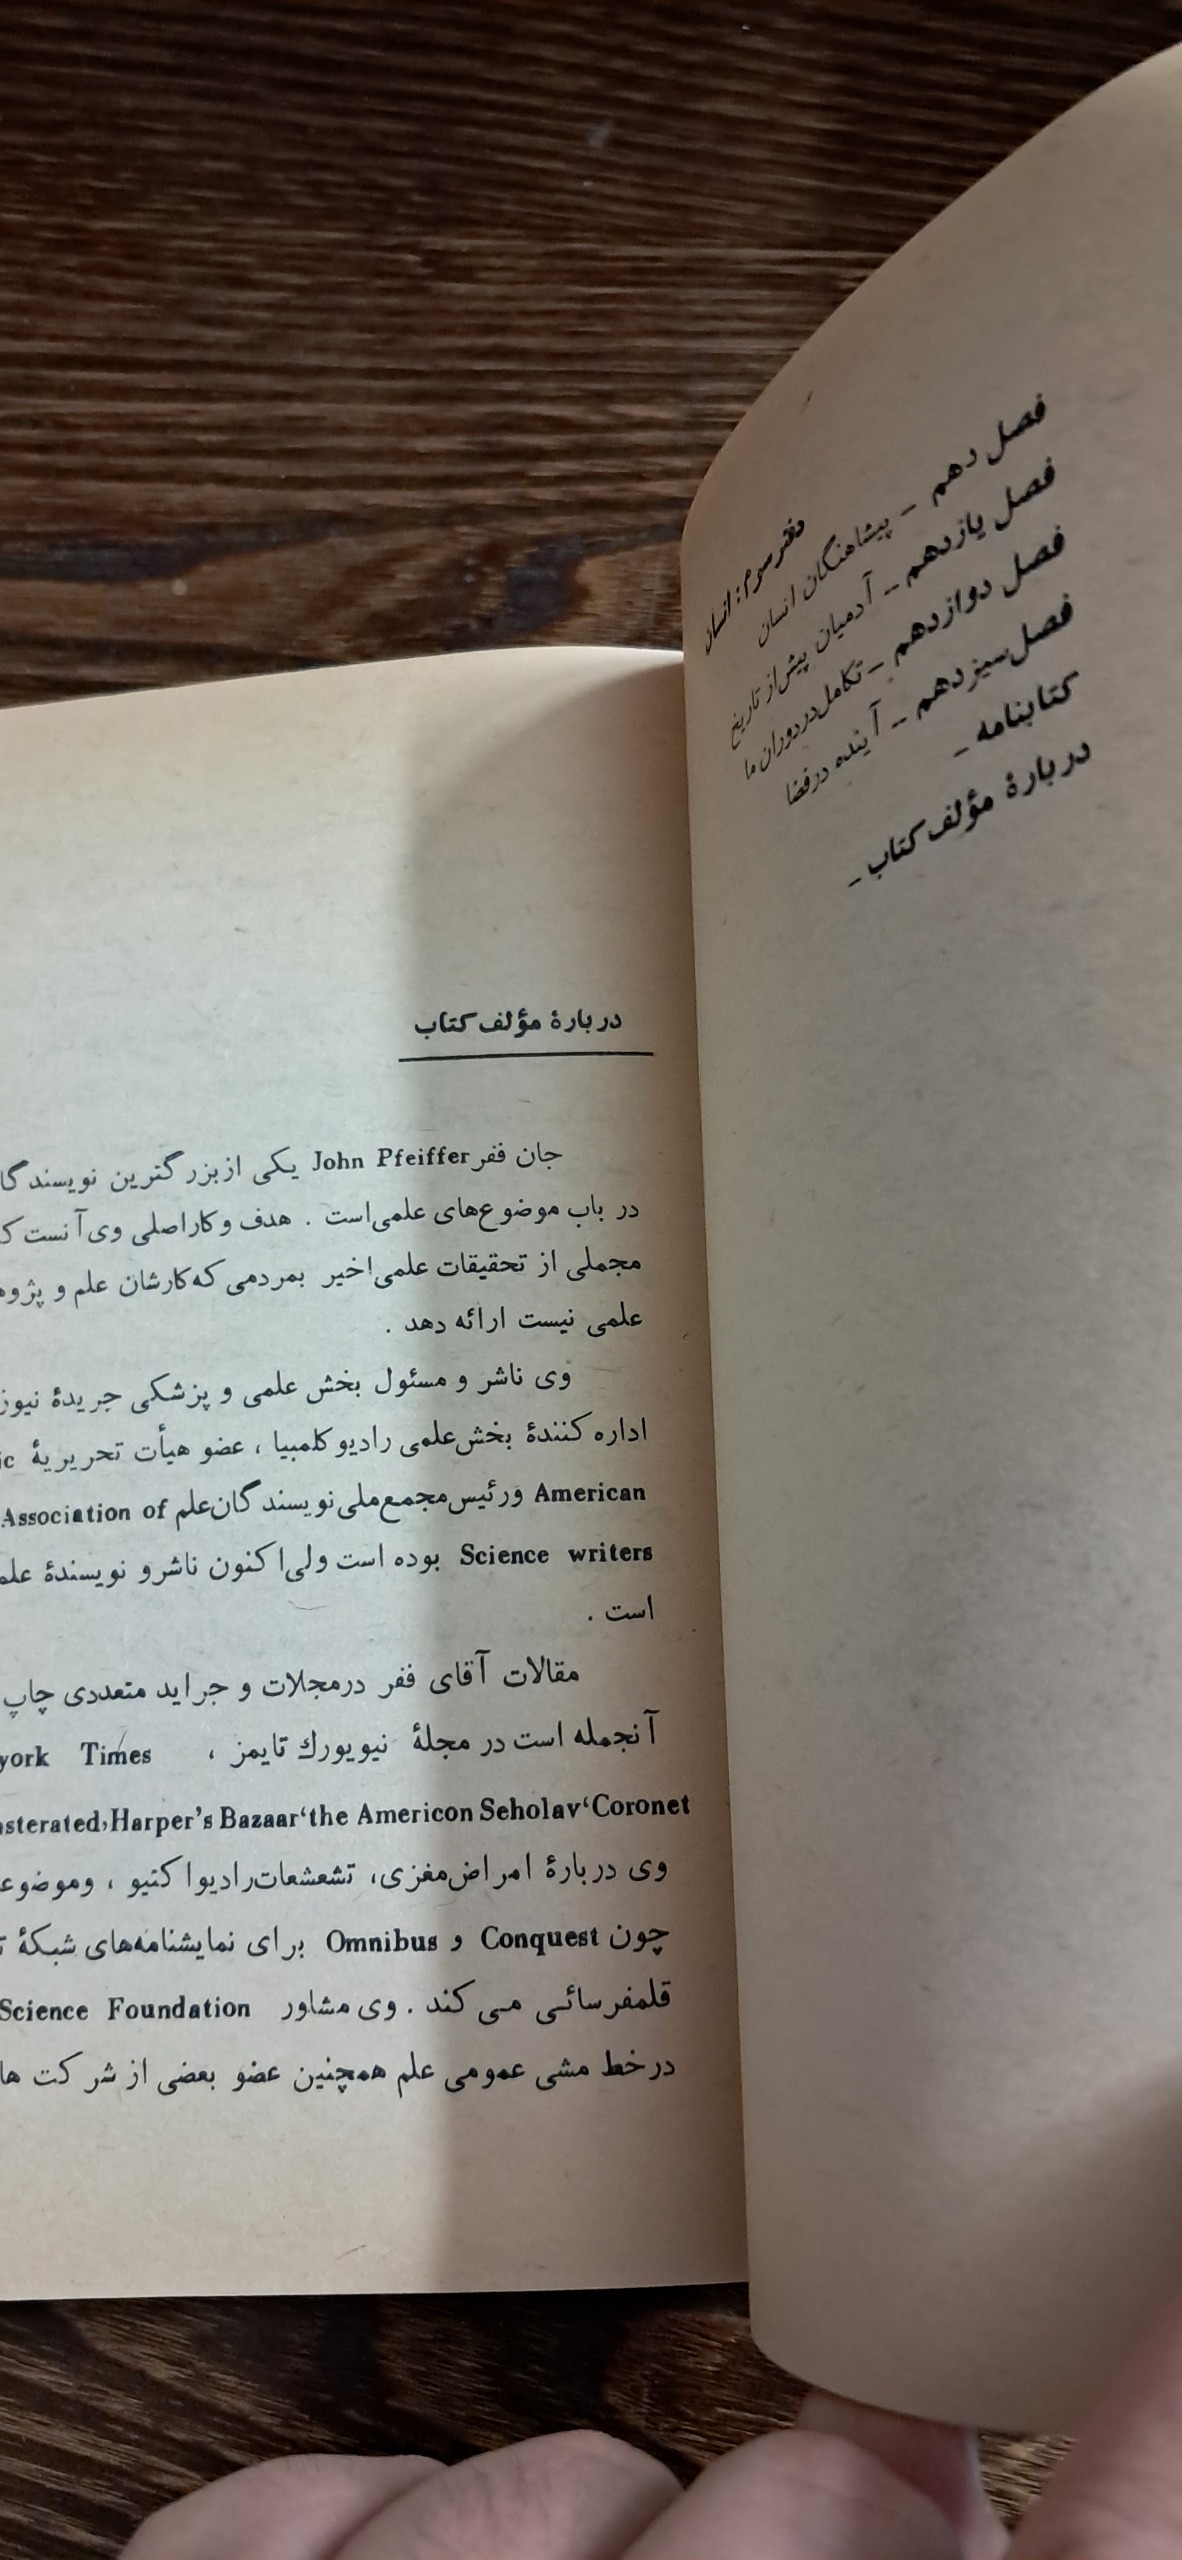 دفتر سوم: انسان
فصل دهم – پیشاهنگان انسان
فصل یازدهم – آدمیان پیش‌از تاریخ
فصل دوازدهم – تکامل‌در دوران ما
فصل‌سیزدهم – آینده درفضا
کتابنامه –
دربارهٔ مؤلف‌کتاب –
دربارهٔ مؤلف‌کتاب
جان ففر John Pfeiffer یکی ازبزرگترین
در باب موضوع‌های علمی‌است . هدف وکاراصلی وی‌آنست
مجملی از تحقیقات علمی‌اخیر بمردمی که‌کارشان علم و
علمی نیست ارائه دهد .
وی ناشر و مسئول بخش علمی و پزشکی جریدهٔ
اداره‌کنندهٔ بخش‌علمی رادیوکلمبیا ، عضو هیأت تحریریهٔ
American ورئیس‌مجمع‌ملی‌نویسندگان‌علم Association of
Science writers بوده است ولی‌اکنون ناشرو نویسندهٔ
است .
مقالات آقای ففر درمجلات و جراید متعددی چاپ
آنجمله است در مجلهٔ نیویورك تایمز ، york Times
Harper’s Bazaar‘the Americon Seholav‘Coronet
وی دربارهٔ امراض‌مغزی، تشعشعات‌رادیواکتیو ،
چون Conquest و Omnibus برای نمایشنامه‌های شبکهٔ
قلمفرسائی می‌کند . وی مشاور Science Foundation
درخط مشی عمومی علم همچنین عضو بعضی از شرکت